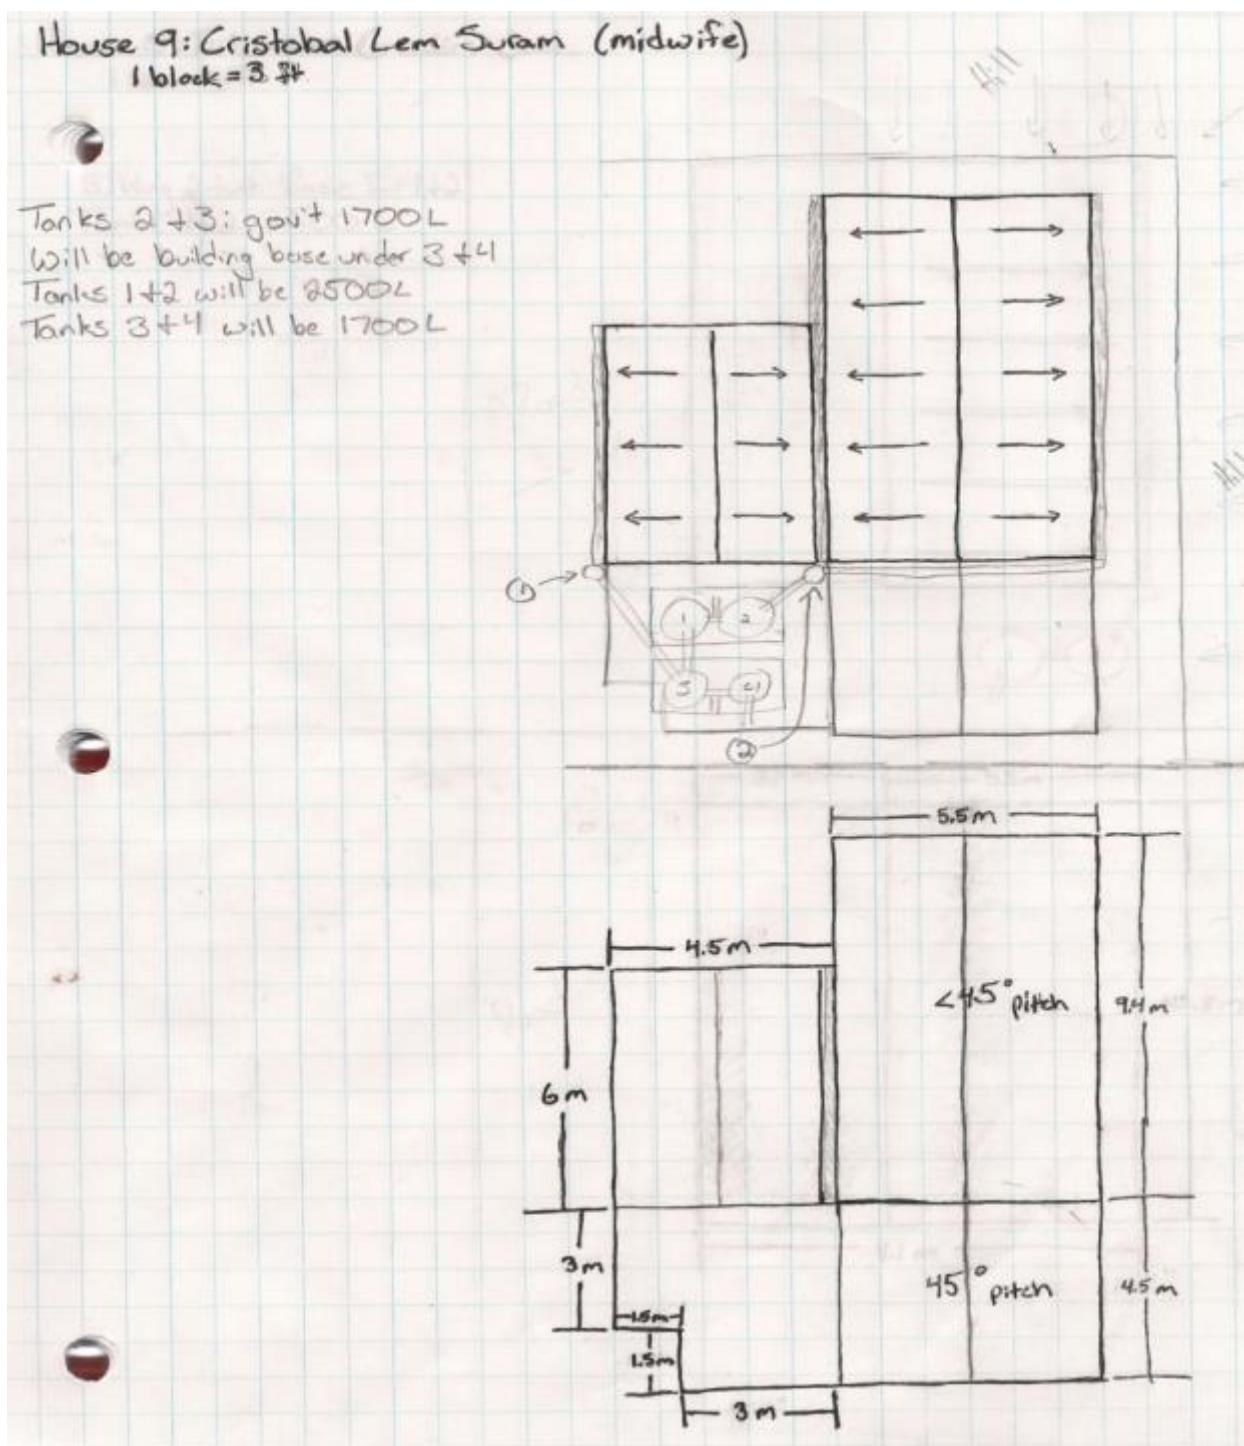 House 9: Cristobal Lem Suram (midwife)
1 block = 3 ft
Hill
Tanks 2 + 3: gov't 1700L
Will be building base under 3 + 4
Tanks 1+2 will be 2500L
Tanks 3+4 will be 1700L
Hill
1
1 2
3 4
2
5.5m
4.5m
<45° pitch
9.4m
6m
3m
45° pitch
4.5m
1.5m
1.5m
3m